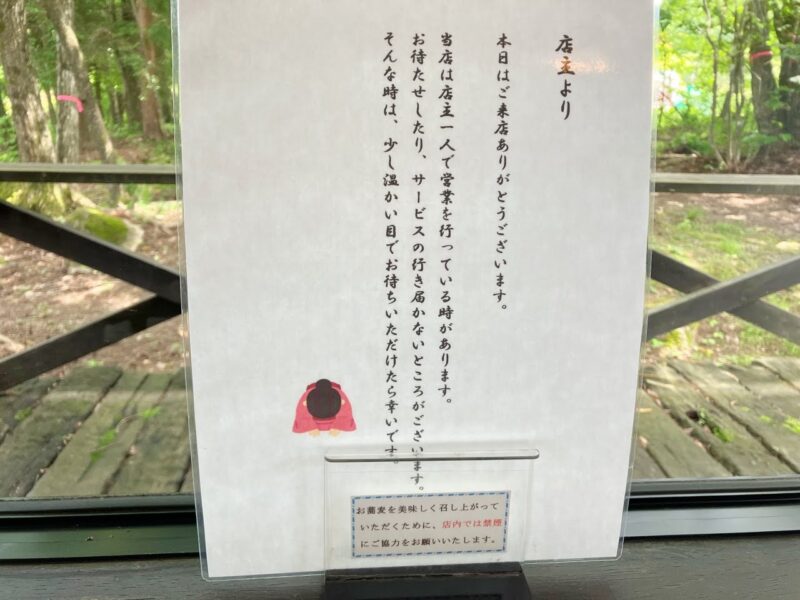 店主より
本日はご来店ありがとうございます。
当店は店主一人で営業を行っている時があります。
お待たせしたり、サービスの行き届かないところがございます。
そんな時は、少し温かい目でお待ちいただけたら幸いです。
お蕎麦を美味しく召し上がって
いただくために、店内では禁煙
にご協力をお願いいたします。